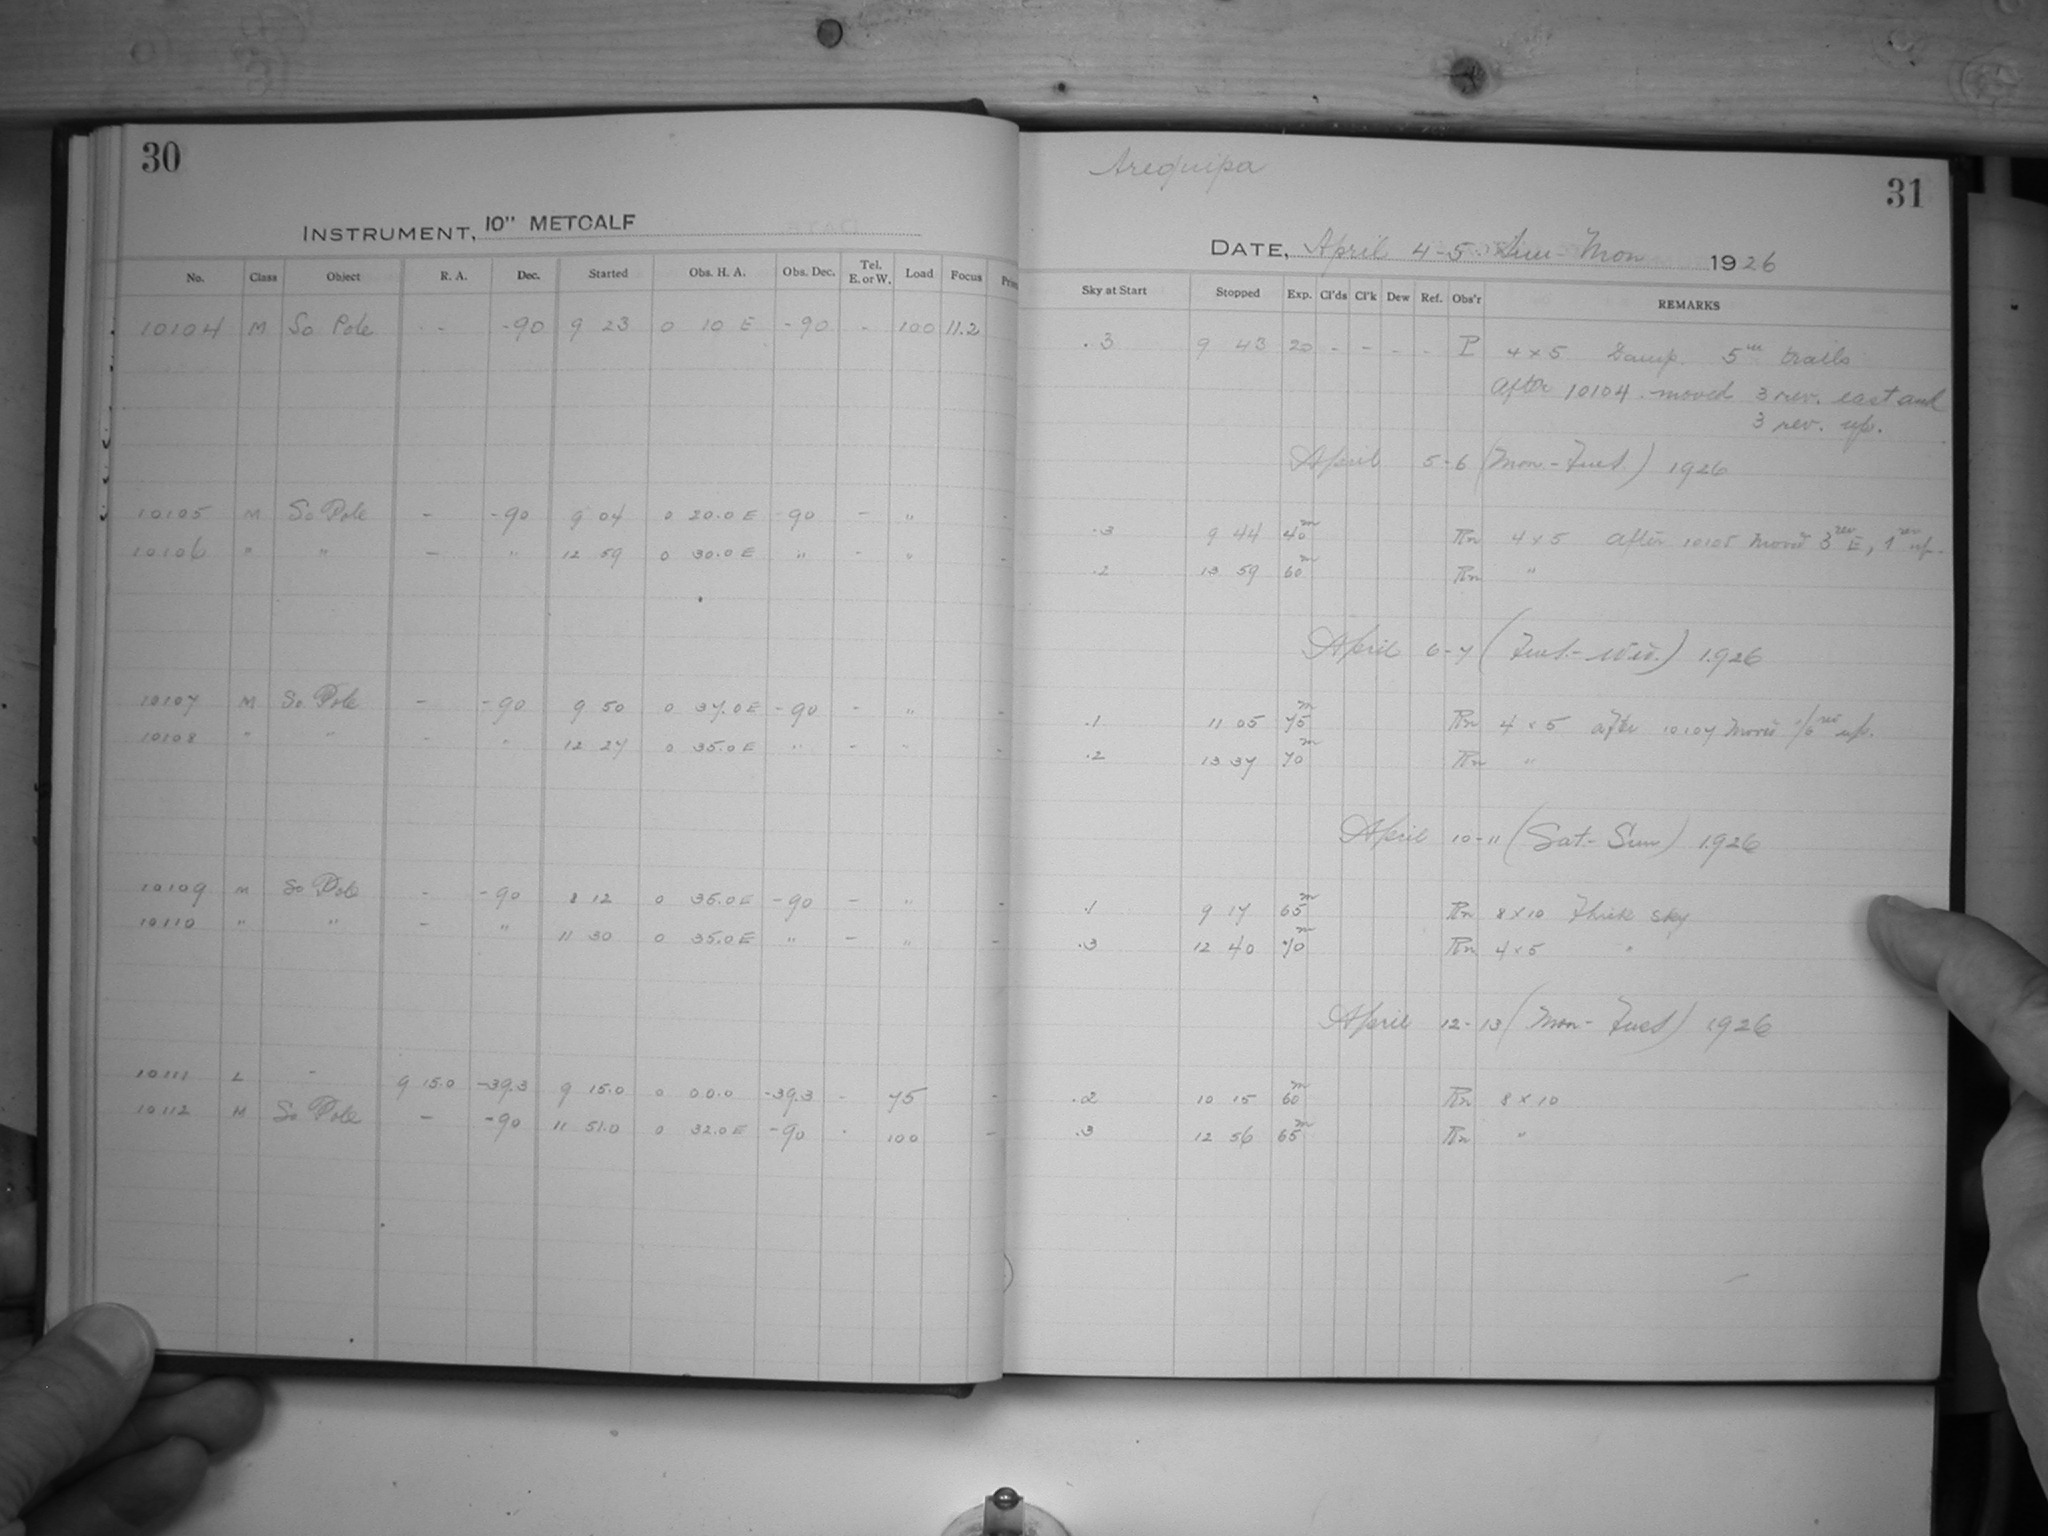 30
INSTRUMENT, 10" METCALF
No. Class Object R. A. Dec. Started Obs. H. A. Obs. Dec. Tel. E. or W. Load Focus
10104 M So Pole - -90 9 23 0 10 E -90 - 100 11.2
10105 M So Pole - -90 9 04 0 20.0 E -90 - " -
10106 " " - " 12 59 0 30.0 E " - " -
10107 M So Pole - -90 9 50 0 37.0 E -90 - " -
10108 " " - " 12 27 0 35.0 E " - " -
10109 M So Pole - -90 8 12 0 35.0 E -90 - " -
10110 " " - " 11 30 0 35.0 E " - " -
10111 L - 9 15.0 -39.3 9 15.0 0 00.0 -39.3 - 75 -
10112 M So Pole - -90 11 51.0 0 32.0 E -90 - 100 -
Arequipa
31
DATE, April 4-5 Sun-Mon 1926
Sky at Start Stopped Exp. Cl'ds Cl'k Dew Ref. Obs'r REMARKS
.3 9 43 20 - - - - P 4 x 5 Damp. 5m trails
After 10104 moved 3 rev. east and
3 rev. up.
April 5-6 (Mon-Tues.) 1926
.3 9 44 40m Rn 4 x 5 After 10105 moved 3rev E, 1rev up.
.2 13 59 60m Rn "
April 6-7 (Tues.-Wed.) 1926
.1 11 05 75m Rn 4 x 5 After 10107 moved rev up.
.2 13 37 70m Rn "
April 10-11 (Sat-Sun) 1926
.1 9 17 65m Rn 8 x 10 Thick sky
.3 12 40 70m Rn 4 x 5 "
April 12-13 (Mon-Tues) 1926
.2 10 15 60m Rn 8 x 10
.3 12 56 65m Rn "